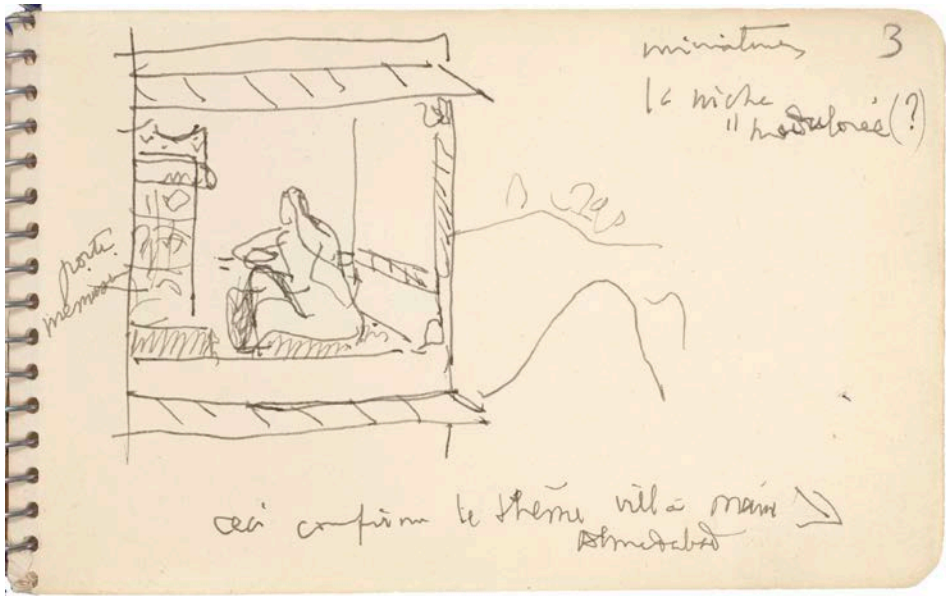 3
miniatures
la niche
"modulorée (?)
porte
ceci confirme le thème villa Mairie
Ahmedabad